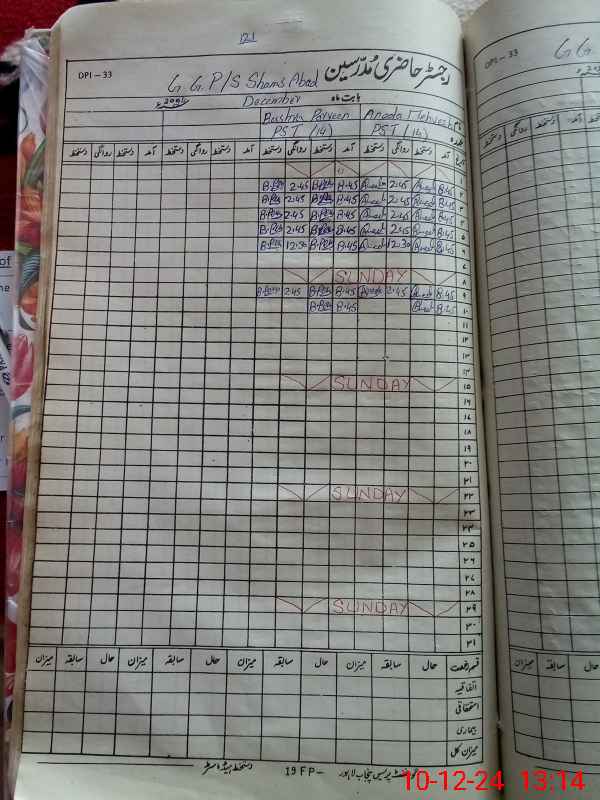 121
DPI-33
رجسٹر حاضری مُدرّسین
G.G.P/S Shams Abad
بابت ماہ December
Bushra Parveen Aneela Mehwesh نام
PST (14) PST (14) عہدہ
تاریخ آمد دستخط روانگی دستخط آمد دستخط روانگی دستخط آمد دستخط روانگی دستخط آمد دستخط روانگی دستخط
۲ 8.45 2.45 8.45 2.45
۳ 8.45 2.45 8.45 2.45
۴ 8.45 2.45 8.45 2.45
۵ 8.45 2.45 8.45 2.45
۶ 8.45 12.30 8.45 12.30
۷
۸ SUNDAY
۹ 8.45 2.45 8.45 2.45
۱۰ 8.45 8.45
۱۱
۱۲
۱۳
۱۴
۱۵ SUNDAY
۱۶
۱۷
۱۸
۱۹
۲۰
۲۱
۲۲ SUNDAY
۲۳
۲۴
۲۵
۲۶
۲۷
۲۸
۲۹ SUNDAY
۳۰
۳۱
قسم رخصت حال سابقہ میزان حال سابقہ میزان حال سابقہ میزان حال سابقہ میزان
اتفاقیہ
استحقاقی
بیماری
میزان کل
دستخط ہیڈ ماسٹر
19 FP– گورنمنٹ پریس پنجاب لاہور
DPI-33
G.G
10-12-24 13:14